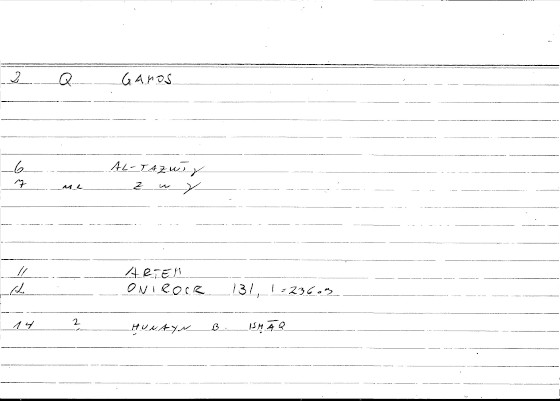 2 Q GAMOS
6 AL-TAZWĪǦ
7 ML Z W Ǧ
11 ARTEM
12 ONIROCR 131, 1 = 236.3
14 2 ḤUNAYN B. ISḤĀQ